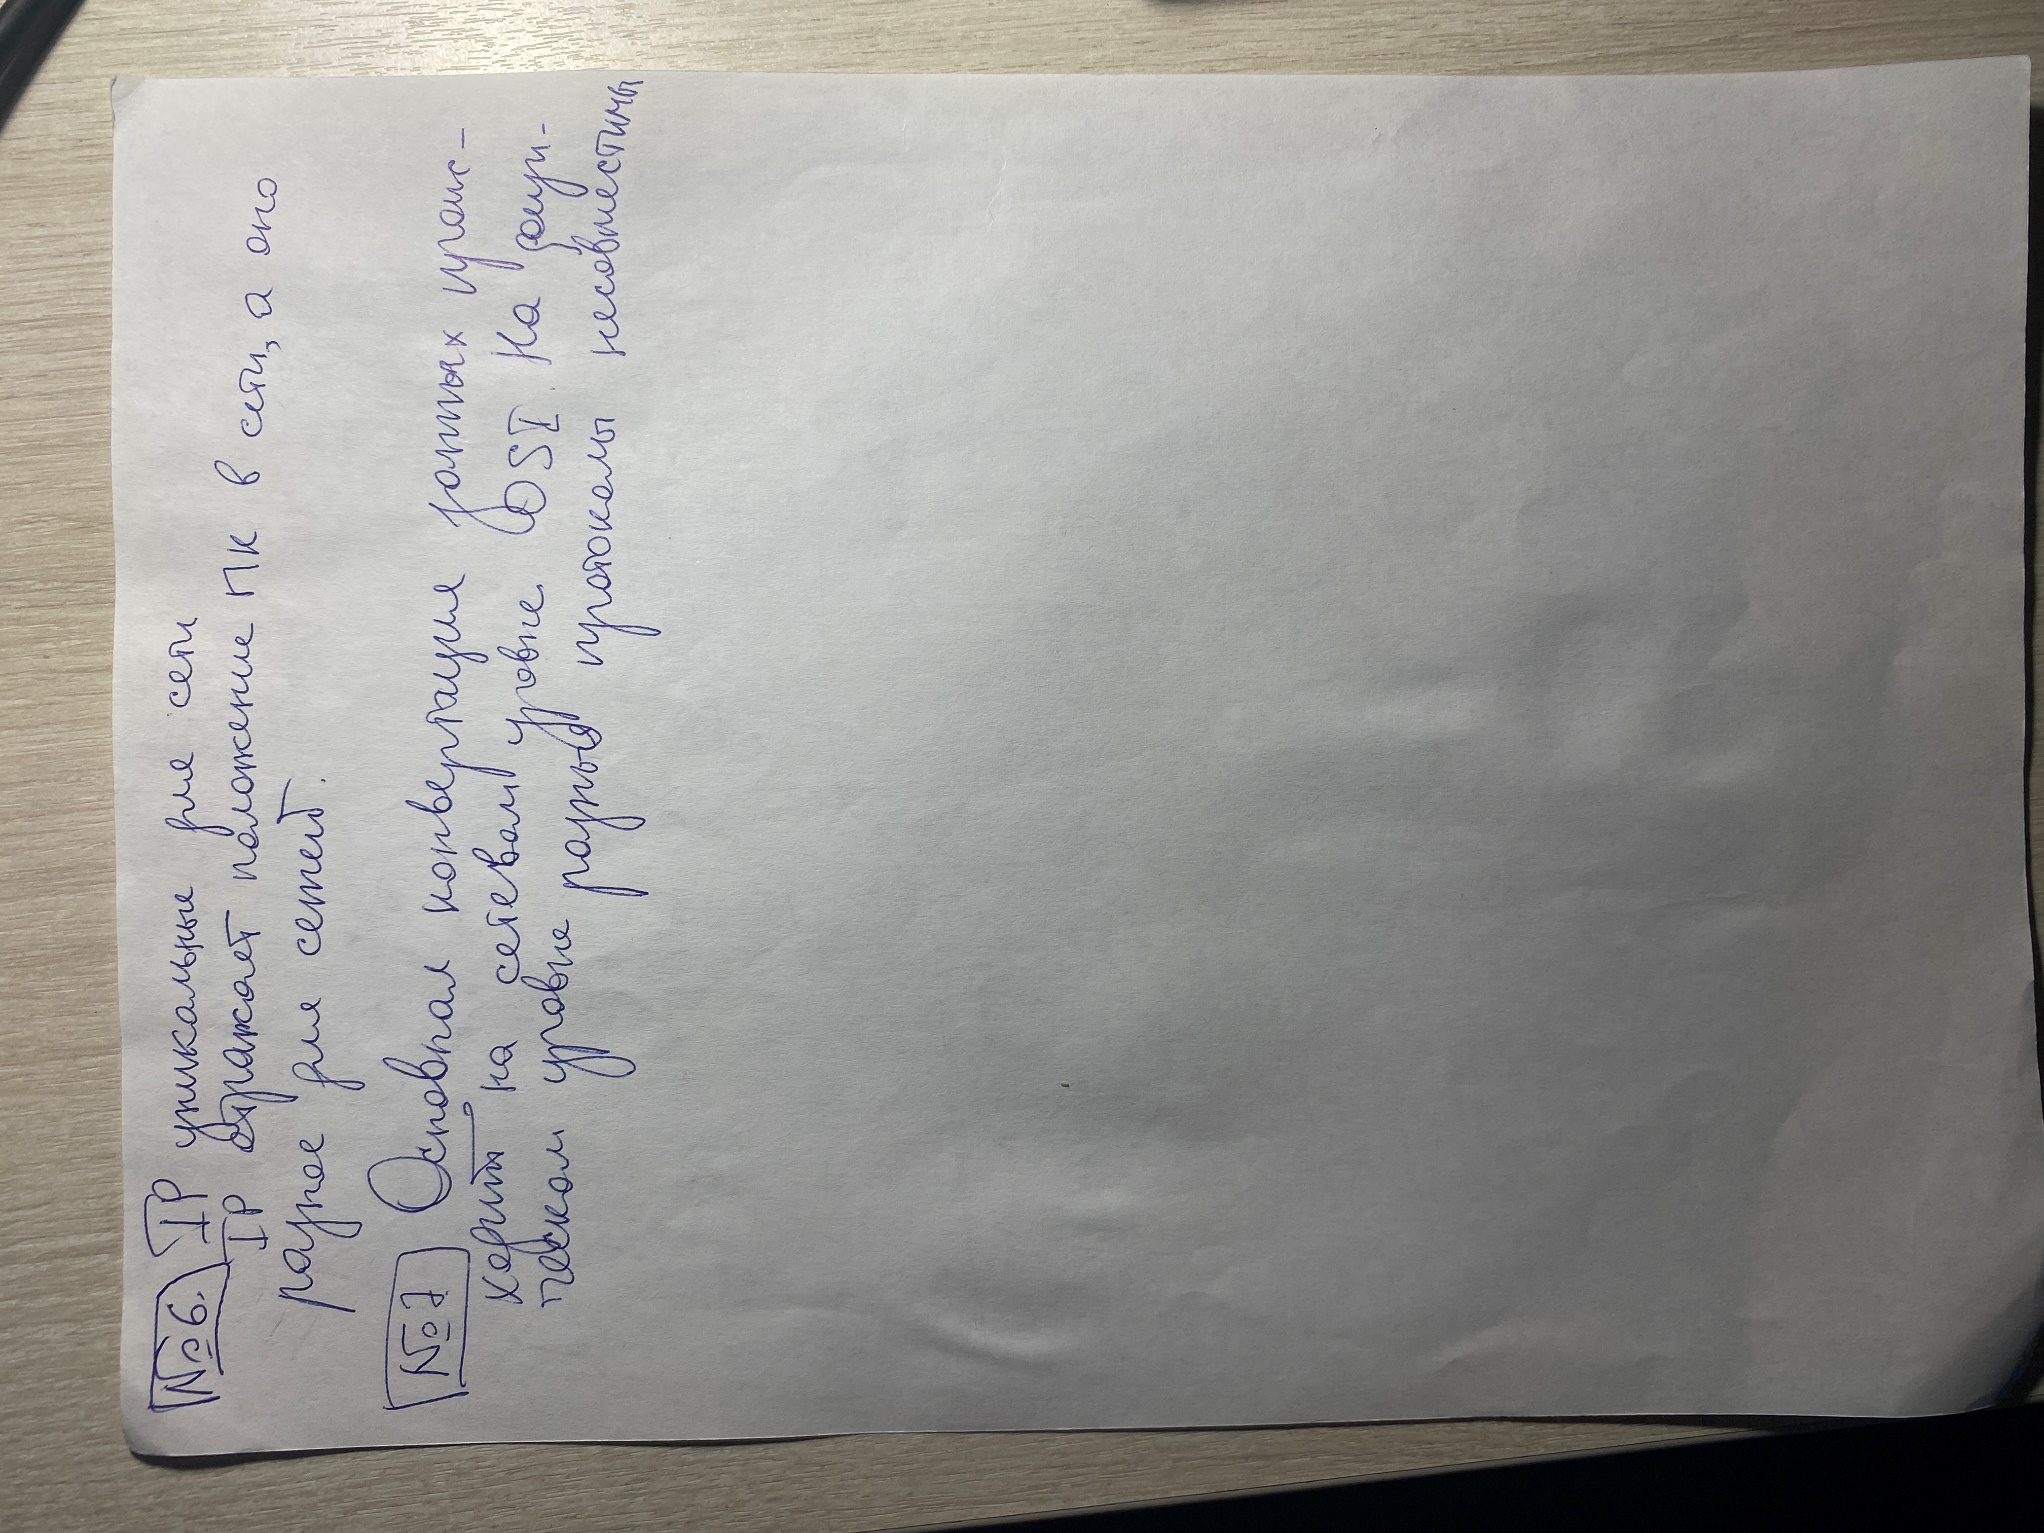 №6. IP уникальные для сети
IP отражает положение ПК в сети, а оно
разное для сетей.
№7 Основная конвертация данных проис-
ходит на сетевом уровне OSI. На физи-
ческом уровне разные протоколы несовместимы